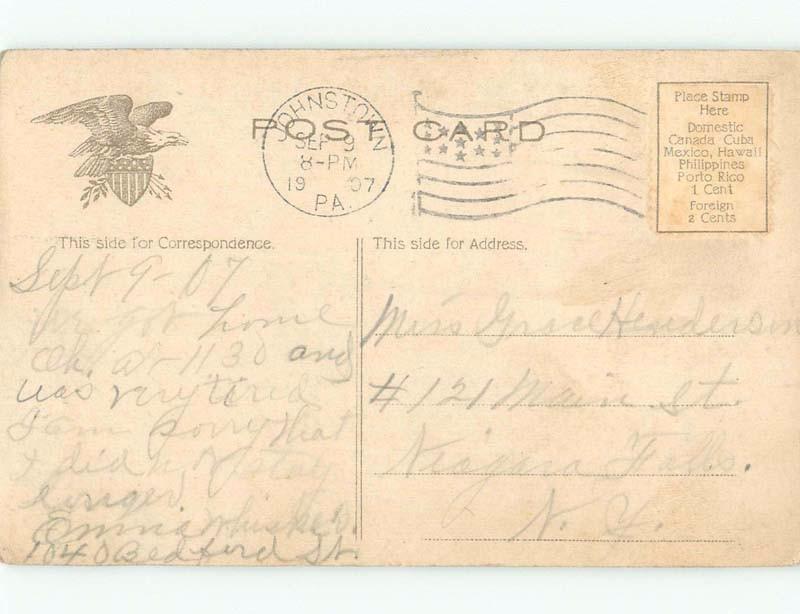 POST CARD
JOHNSTOWN
SEP 9
8-PM
19 07
PA.
Place Stamp
Here
Domestic
Canada Cuba
Mexico, Hawaii
Philippines
Porto Rico
1 Cent
Foreign
2 Cents
This side for Correspondence.
Sept 9-07
We got home
Ok. at 1130 and
was very tired
I am sorry that
I did not stay
longer,
Emma Whisker.
1040 Bedford St.
This side for Address.
Miss Grace Henderson
#121 Main St.
Niagara Falls.
N. Y.